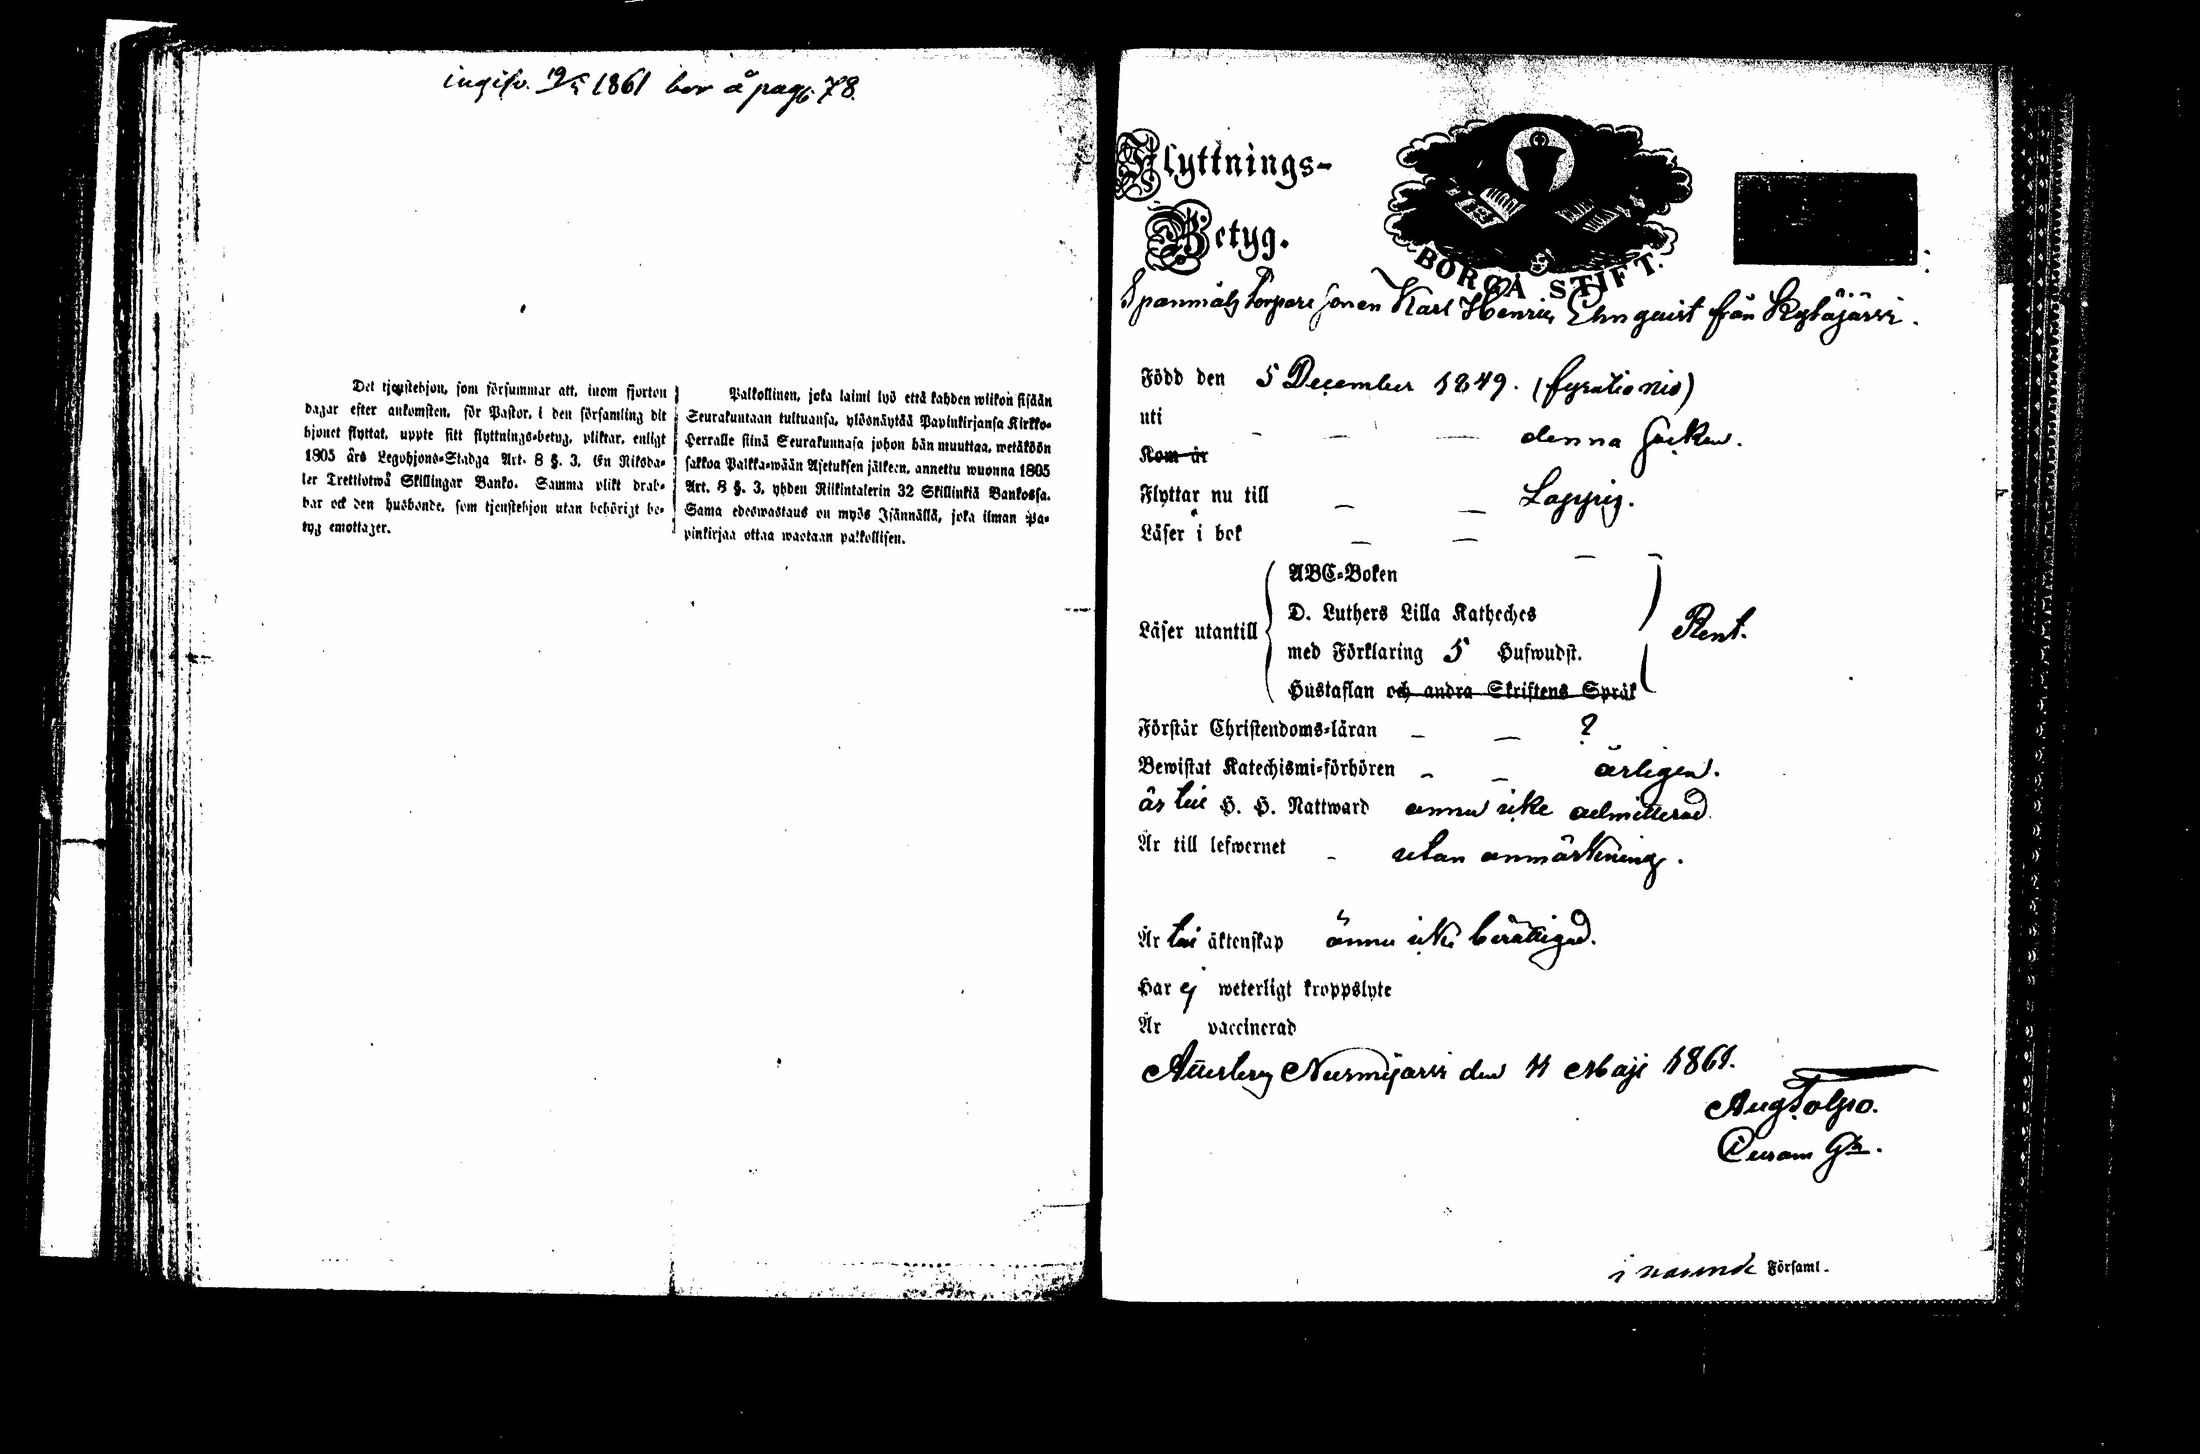 ingifv. 19/5 1861 bor å pag. 78.
Det tjenstehjon, som försummar att, inom fjorton
dagar efter ankomsten, för Pastor, i den församling dit
hjonet flyttat, uppte sitt flyttnings-betyg, pliktar, enligt
1805 års Legohjons-Stadga Art. 8 §. 3, En Riksda-
ler Trettiotwå Skillingar Banko. Samma plikt drab-
bar ock den husbonde, som tjenstehjon utan behörigt be-
tyg emottager.
Palkollinen, joka laimi lyö että kahden wiikon sisään
Seurakuntaan tultuansa, ylösnäytää Papinkirjansa Kirkko-
Herralle siinä Seurakunnasa johon hän muuttaa, wetäköön
sakkoa Palkka-wään Asetuksen jälkeen, annettu wuonna 1805
Art. 8 §. 3, yhden Riikintalerin 32 Skillinkiä Bankossa.
Sama edeswastaus on myös Isännällä, joka ilman Pa-
pinkirjaa ottaa wastaan palkollisen.
Flyttnings-
Betyg.
BORGÅ STIFT.
Spannmåls Torpare sonen Karl Henric Ehnquist från Kytäjärvi.
Född den 5 December 1849. (fyratio nio)
uti
denna Socken.
Kom år
Flyttar nu till Loppis.
Läser i bok
ABC-Boken
D. Luthers Lilla Katheches
Läser utantill
med Förklaring 5 Hufwudst.
Rent.
Hustaflan och andra Skriftens Språk
Förstår Christendoms-läran ?
Bewistat Katechismi-förhören årligen.
är till H. H. Nattward ännu icke admitterad.
Är till lefwernet utan anmärkning.
Är till äktenskap ännu icke berättigad.
Har ej weterligt kroppslyte
Är vaccinerad
Nurmijärvi den 11 Maji 1861.
Aug. Tolpo.
i Församl.